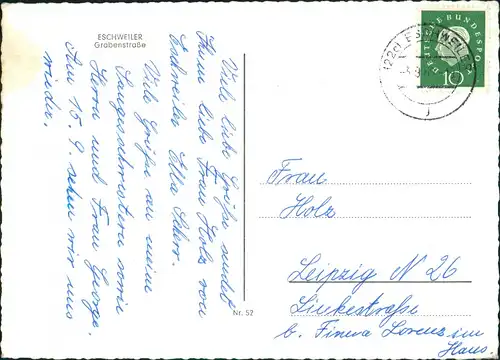 ESCHWEILER
Grabenstraße
Viele liebe Grüße sendet
Ihnen liebe Frau Holz von
Eschweiler Ella Schrr.
Viele Grüße an meine
Sangesschwestern sowie
Herrn und Frau George.
Am 15. 9. sehen wir uns
wieder.
Nr. 52
DEUTSCHE BUNDESPOST
10
(22c) ESCHWEILER
Frau
Holz
Leipzig N 26
Linkestraße
b. Lorenz im
Haus